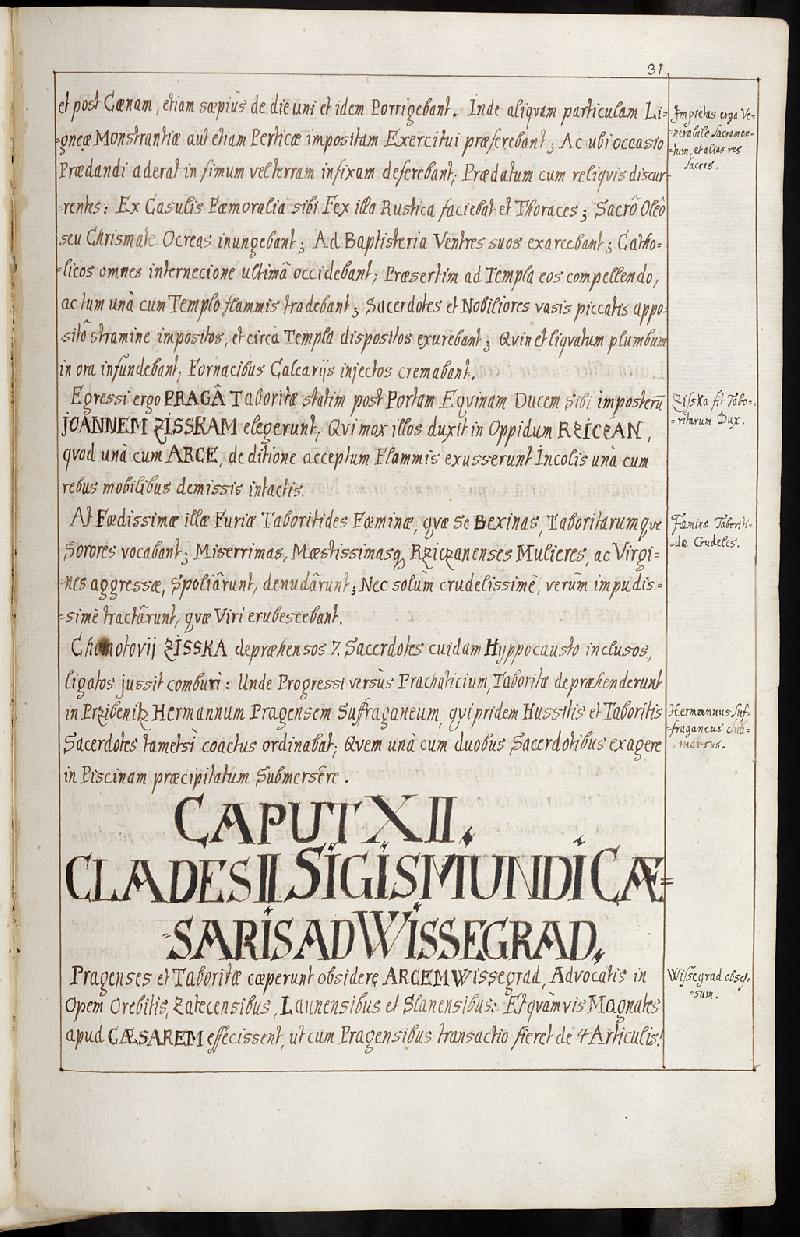 31.
et post Cœnam, etiam sæpiùs de die uni et idem Porrigebant. Inde aliqvam particulam Li-
-gneæ Monstrantiæ aut etiam Perticæ impositam Exercitui præferebant; Ac ubi occasio
Prædandi aderat in fimum vel terram infixam deferebant; Prædatum cum reliqvis discur-
-rentes: Ex Casulis Fœmoralia sibi Fex illa Rustica faciebat et Thoraces; Sacrô Oleô
seu Chrismate Ocreas inungebant; Ad Baptisteria Ventres suos exarcebant; Catho-
-licos omnes internecione ultimâ occidebant; Præsertim ad Templa eos compellendo,
ac tum unà cum Templo flammis tradebant; Sacerdotes et Nobiliores vasis piccatis appo-
-sitô stramine impositos, et circa Templa dispositos exurebant; Qvin et liqvatum plumbum
in ora infundebant; Fornacibus Calcarijs injectos cremabant.
Egressi ergo PRAGÂ Taboritæ statim post Portam Eqvinam Ducem sibi imposterũ
JOANNEM ZISSKAM elegerunt; Qvi mox illos duxit in Oppidum RZICZAN,
qvod unà cum ARCE, de ditione acceptum Flammis exusserunt Incolis una cum
rebus mobilibus demissis intactis.
At Fœdissimæ illæ Furiæ Taboritides Fœminæ, qvæ se Bexinas, Taboritarumqve
Sorores vocabant; Miserrimas, Mæstissimasq Rziczanenses Mulieres, ac Virgi-
-nes aggressæ, Spoliârunt, denudârunt; Nec solùm crudelissimè, verùm impudis-
-simè tractârunt, qvæ Viri erubescebant.
Chomotovij ZISSKA depræhensos 7. Sacerdotes cuidam Hyppocausto inclusos,
ligatos jussit comburi: Unde Progressi versùs Prachaticium, Taboritæ depræhenderunt
in Przibenitz Hermannum Pragensem Suffraganeum, qvi pridem Hussitis et Taboritis
Sacerdotes tametsi coactus ordinabat; Qvem unà cum duobus Sacerdotibus exagere
in Piscinam præcipitatum Submersêre.
CAPUT XII.
CLADES II SIGISMUNDI CÆ-
-SARIS AD WISSEGRAD.
Pragenses et Taboritæ cœperunt obsidere ARCEM Wissegrad, Advocatis in
Opem Orebitis, Zatecensibus, Launnensibus et Slanensibus: Et qvamvis Magnates
apud CÆSAREM effecissent, ut cum Pragensibus transactio fieret de 4 Articulis:
Impietas erga Ve-
-nerabile Sacramen-
-tum, et alias res
Sacras.
Zisska fit Tabo-
-ritarum Dux.
Fæminæ Taboriti-
-dæ Crudeles.
Hermannus Suf-
-fraganeus Sub-
-mersus.
Wissegrad obses-
-sum.